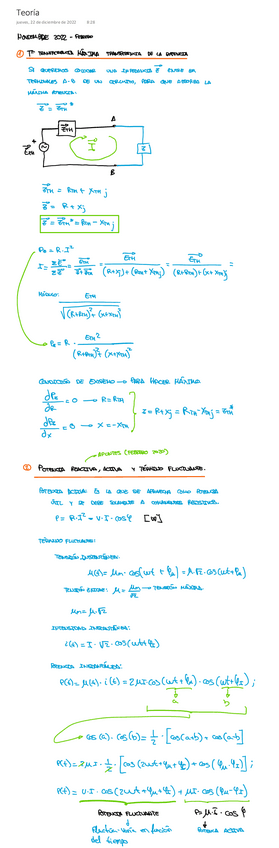 Teoría
jueves, 22 de diciembre de 2022 8:28
NOVIEMBRE 2022 - FEBRERO
① Tª TRANSFERENCIA MÁXIMA TRANSFERENCIA DE LA POTENCIA
SI QUEREMOS COLOCAR UNA IMPEDANCIA Z ENTRE LOS
TERMINALES A-B DE UN CIRCUITO, PARA QUE ABSORBA LA
MÁXIMA POTENCIA:
Z = Z_TH*
A
Z_TH
E_TH
I
Z
B
Z_TH = R_TH + X_TH j
Z = R + Xj
Z = Z_TH* = R_TH - X_TH j
P_R = R·I²
MÓDULO: E_TH / √((R+R_TH)² + (X+X_TH)²)
P_R = R · E_TH² / ((R+R_TH)² + (X+X_TH)²)
CONDICIÓN DE EXTREMO → PARA HACER MÁXIMO
dP_R/dR = 0 → R = R_TH
Z = R + Xj = R_TH - X_TH j = Z_TH*
dP_R/dX = 0 → X = -X_TH
APUNTES (FEBRERO 2020)
② POTENCIA REACTIVA, ACTIVA Y TÉRMINO FLUCTUANTE.
POTENCIA ACTIVA: ES LA QUE SE APROVECHA COMO POTENCIA
ÚTIL Y SE DEBE SOLAMENTE A COMPONENTES RESISTIVOS.
P = R·I² = U·I·cos φ [W]
TÉRMINO FLUCTUANTE:
TENSIÓN INSTANTÁNEA:
u(t) = u_m · cos(ωt + φ_u) = u √2 · cos(ωt + φ_u)
TENSIÓN EFICAZ: u = u_m/√2 → TENSIÓN MÁXIMA
u_m = u·√2
INTENSIDAD INSTANTÁNEA:
i(t) = I · √2 · cos(ωt + φ_I)
POTENCIA INSTANTÁNEA:
P(t) = u(t) · i(t) = 2uI cos(ωt + φ_u) · cos(ωt + φ_I) ;
a b
cos(a) · cos(b) = 1/2 · [cos(a+b) + cos(a-b)]
P(t) = 2uI · 1/2 · [cos(2ωt + φ_u + φ_I) + cos(φ_u - φ_I)] ;
P(t) = U·I · cos(2ωt + φ_u + φ_I) + uI · cos(φ_u - φ_I)
POTENCIA FLUCTUANTE P = uI · cos φ
Fluctúa-varía en función POTENCIA ACTIVA
del tiempo